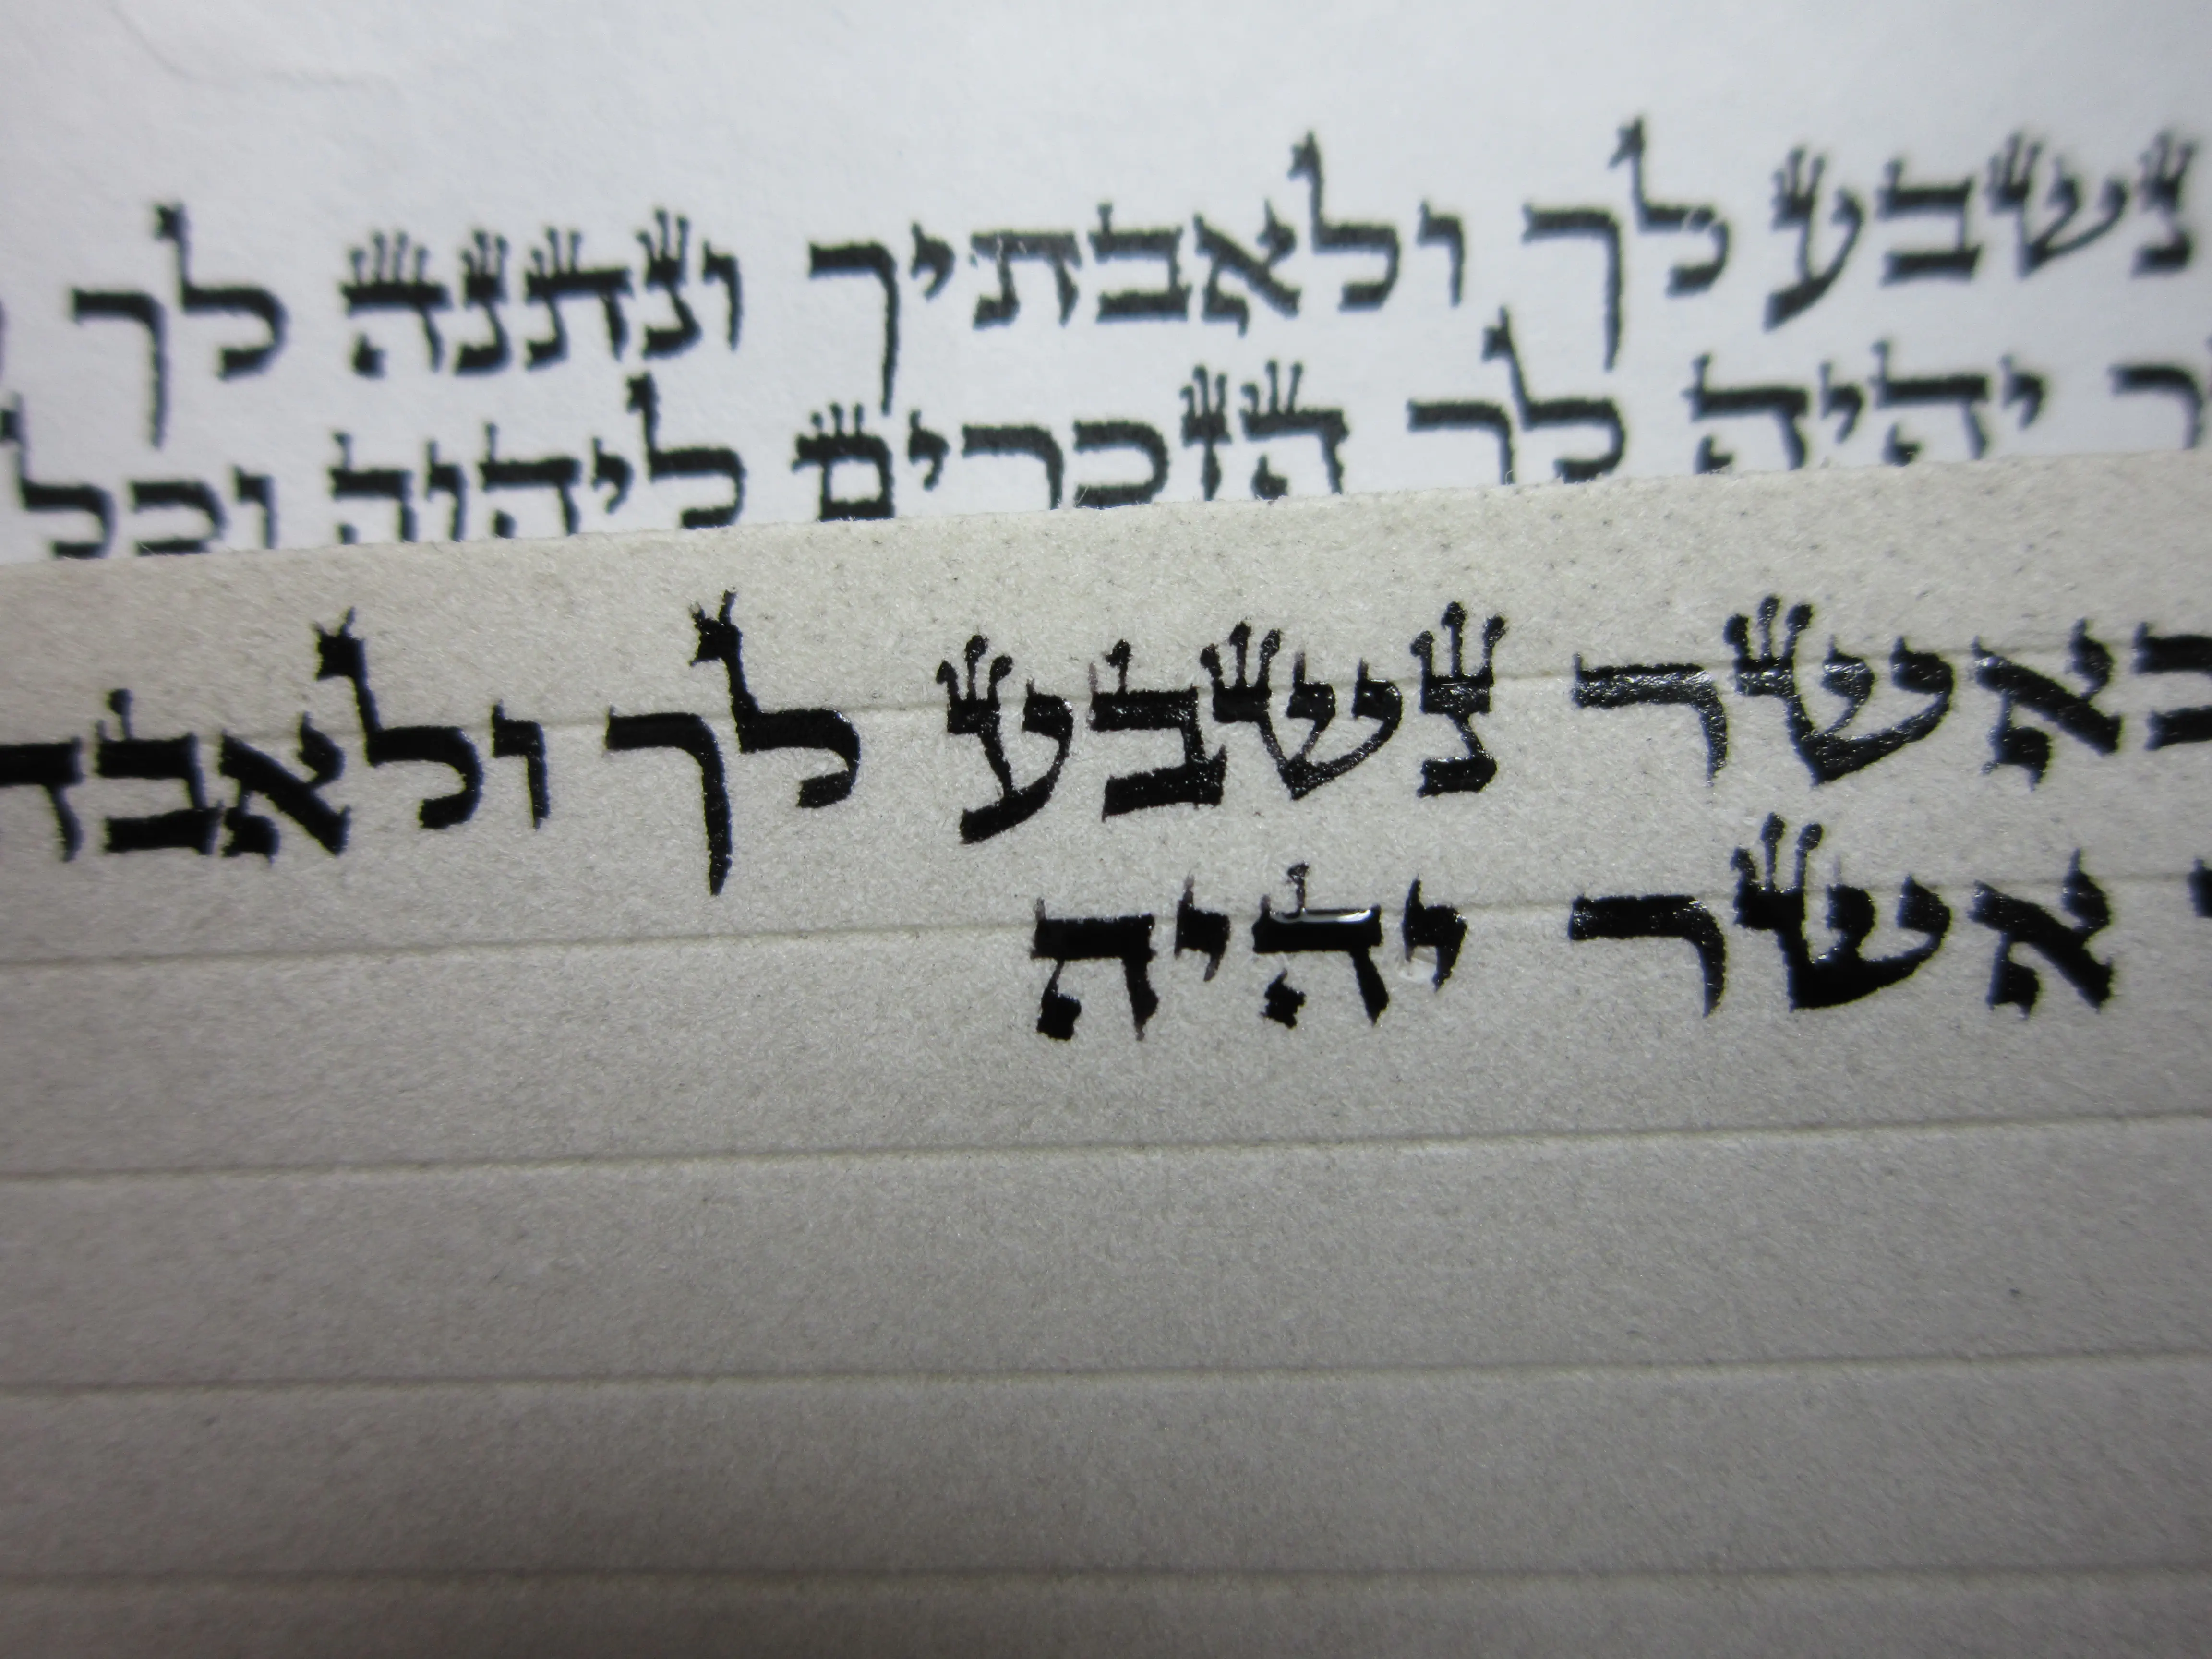 נשבע לך ולאבתיך ונתנה לך
יהיה לך הזכרים ליהוה וכל
כאשר נשבע לך ולאבת
אשר יהיה